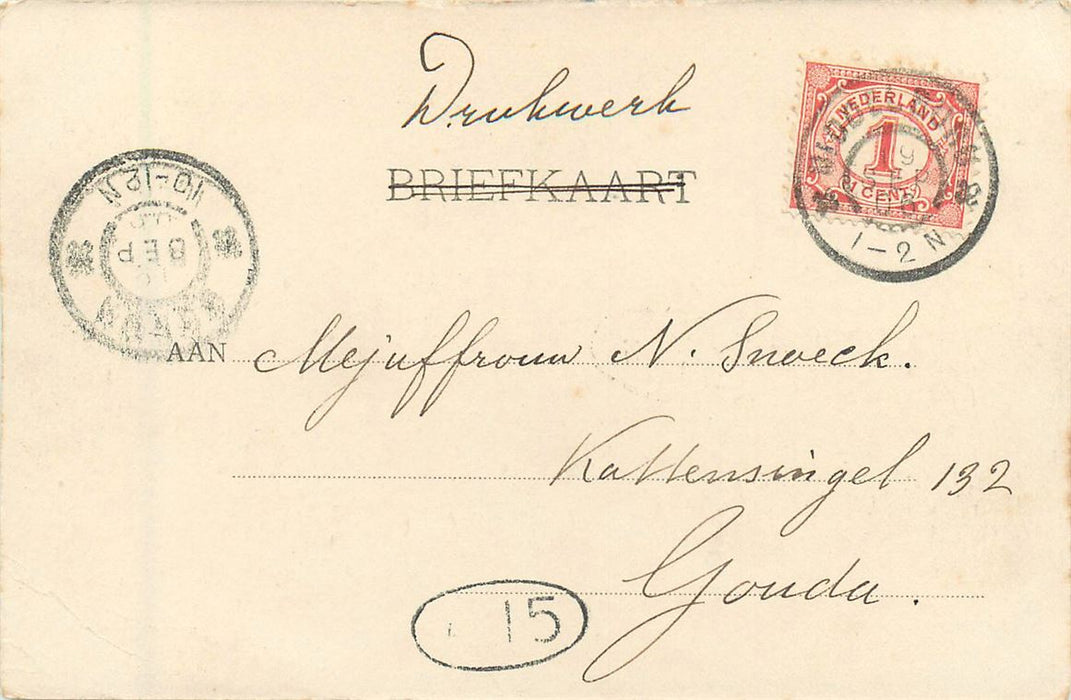 Drukwerk
BRIEFKAART
NEDERLAND
1
CENT
1-2 N
10-12 N
SEP
AAN Mejuffrouw N. Snoeck.
Kattensingel 132
Gouda.
15